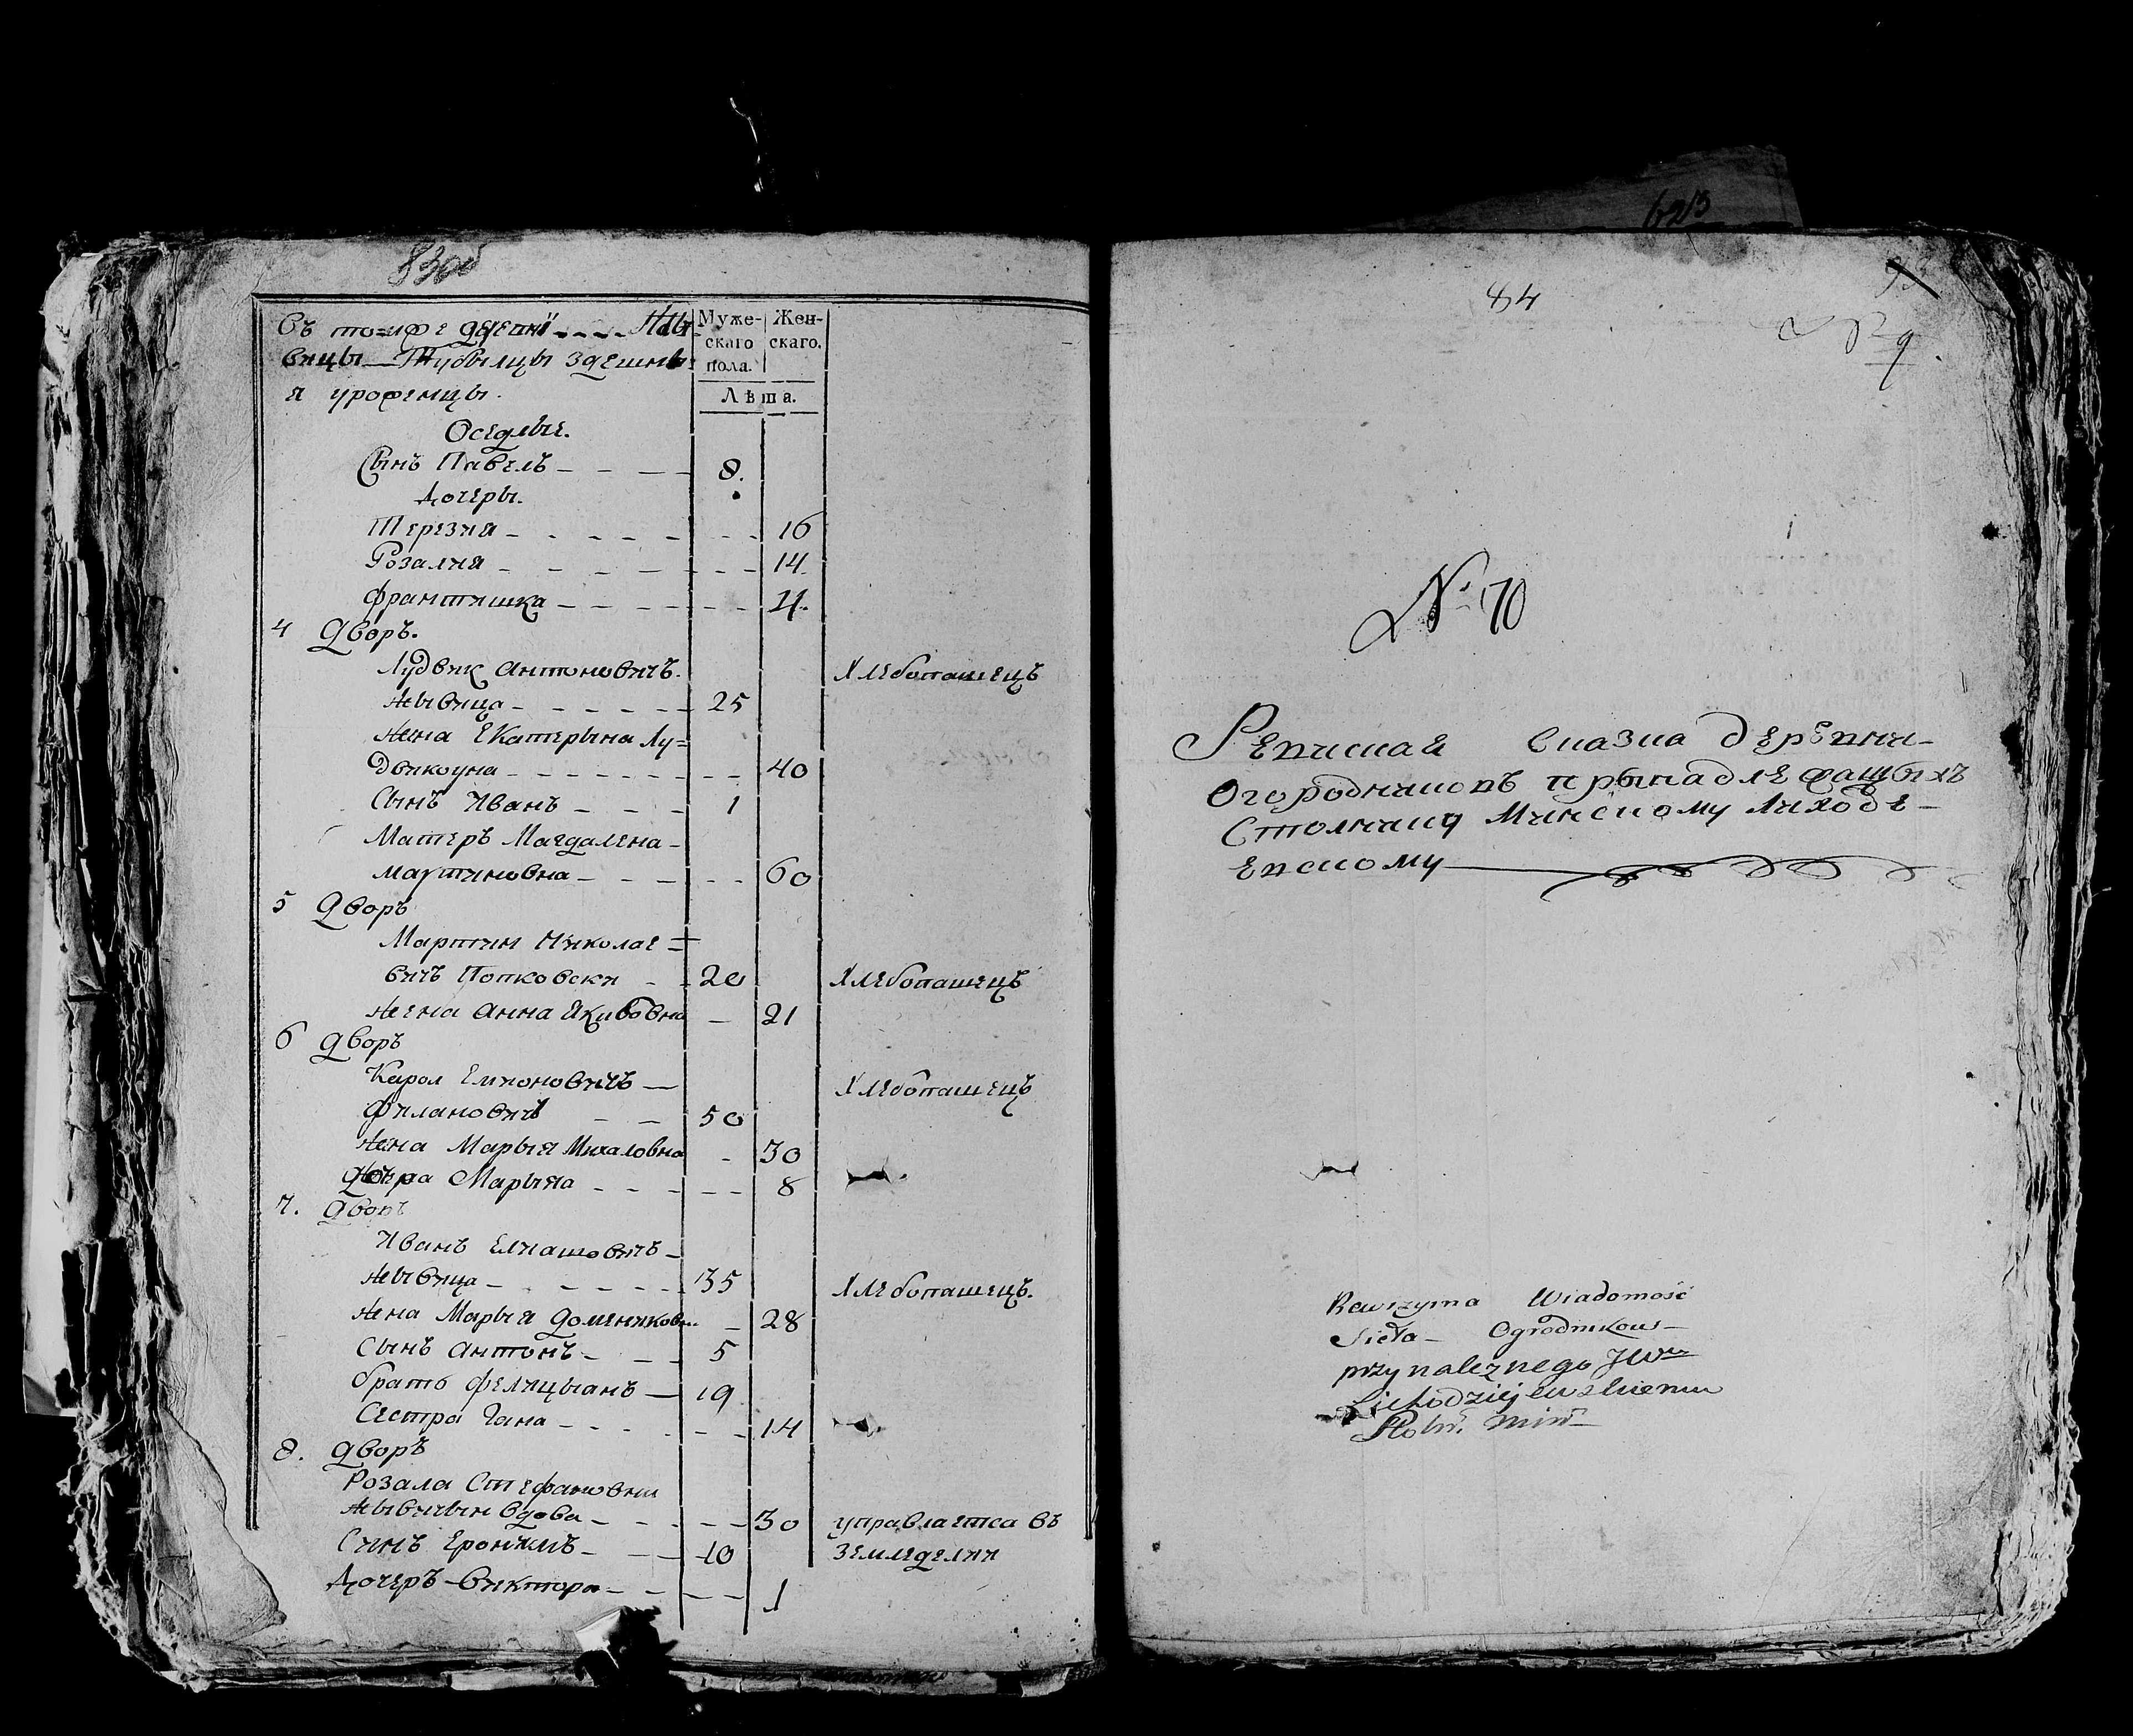 83об
Въ тойже деревни - - - - Жы-
вицы — Тубылцы здешны-
я урожемцы.
Муже-
скаго
пола.
Жен-
скаго.
Лѣта.
Оседлые.
Сынъ Павелъ — — — — 8.
Дочеры.
Терезия — - - - - - - 16
Розалия — - - - - - - 14
Франтишка — - - - - - - 4.
4 Дворъ.
Лудвик Антоновичъ. Хлебопашецъ
Жывица — - - - - - 25
Жена Екатерына Лу=
двикоуна — - - - - - - - 40
Сынъ Иванъ — — - - 1
Матеръ Магдалена —
Мартиновна — - - - - - 60
5 Дворъ
Мартин Николае=
вичъ Попковски - - 20 Хлебопашецъ
Жена Анна Якубовна — 21
6 Дворъ
Карол Емионовичъ — Хлебопашецъ
Филановичъ — — 50
Жена Марыя Михаловна - 30
Дочера Марыяа - - - - - - 8
7. Дворъ
Иванъ Елиашовичъ —
Жывица — - - - - - 35 Хлебопашецъ.
Жена Марыя Домеников — 28
Сынъ Антонъ — - - 5
братъ Фелицыанъ — 19
Сестра Гана — - - - - - 14
8. Дворъ
Розала Стефановна
Жывичын вдова — - - - - - 30 управлаетса въ
Сынъ Еронимъ — - - - 10 земледелии
Дочеръ Виктора — - - - 1
623
84
93
№ 70
Ревиская сказка деревни-
Огородников прынадлежащыхъ
Столнику Минскому Лиходе-
евскому
Rewizyina Wiadomość
Sieła Ogrodnikow
przynależnego JWu
Lichodziejewskiemu
Stoln. Miń